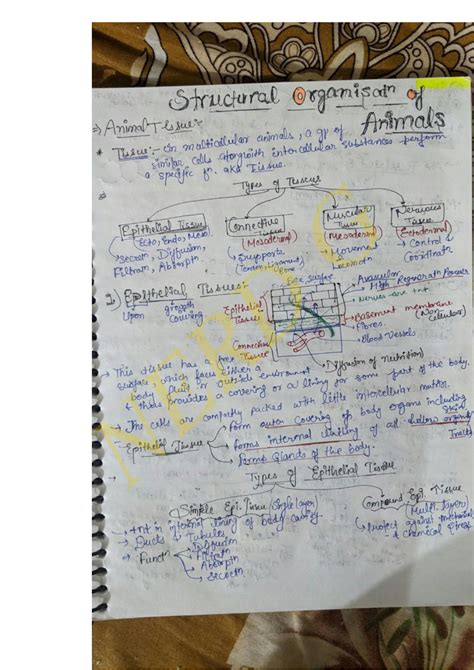 Structural Organisatn of
Animals
⇒ Animal Tissue:-
* Tissue:- In multicellular animals, a gp of
similar cells alongwith intercellular substances perform
a specific fn. aka Tissue.
Types of Tissues
Epithelial Tissue
(Ecto, Endo, Meso)
→ Secretn, Diffusion,
Filtratn, Absorptn
Connective
Tissue
(Mesodermal)
→ Support
(Tendon, Ligaments)
Bone
Muscular
Tissue
(Mesodermal)
→ Movement
Locomotn
Nervous
Tissue
(Ectodermal)
→ Control &
Coordinatn
1) Epithelial Tissues:-
Upon growth
Covering
Free surface
Epithelial
Tissue
Connective
Tissue
→ Avascular
→ High Regeneratn Power
→ Nerves are
→ Basement membrane
(Non Cellular)
→ Fibres
→ Blood Vessels
(Diffusion of Nutrition)
→ This tissue has a free
surface, which faces either a
body fluid or outside environment
& thus provides a covering or a lining for some part of the body.
→ The cells are compactly packed with little intercellular matrix.
→ Epithelial Tissue
form outer covering of body organs including Skin
forms internal lining of all hollow organs
Tracts
Forms Glands of the body.
Types of Epithelial Tissue
Simple Epi. Tissue (Single layer)
→ in internal lining of body cavity,
Ducts & Tubules
→ Functn
→ Diffusion
→ Filtratn
→ Absorptn
→ Secretn
Compound Epi. Tissue
(Multi-layer)
→ Protect against mechanical
& chemical
NEPTUNE